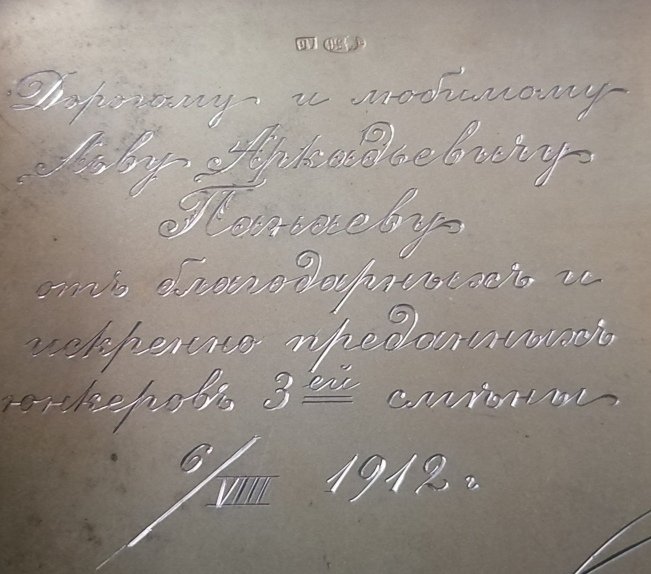 Дорогому и любимому
Льву Аркадьевичу
Панаеву
отъ благодарныхъ и
искренно преданныхъ
юнкеровъ 3ей смѣны
6/VIII 1912 г.